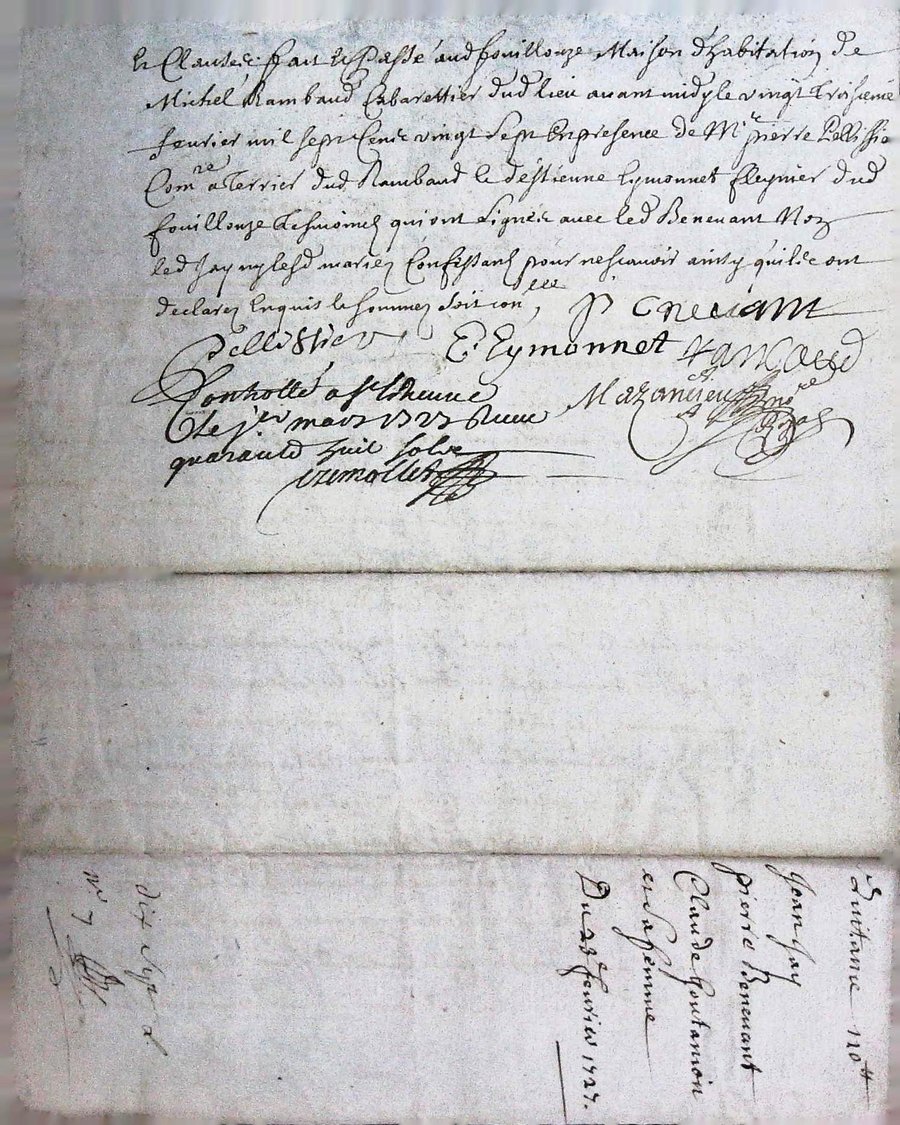 et Clauses fait et Passé aud fouillouze Maison d'habitation de
Michel Rambaud Cabarettier dud lieu avant midy le vingt troisieme
fevrier mil sept Cens vingt sept En presence de Mre pierre Pellissie
Comre a Terrier dud Rambaud et d'estienne Eymonnet dud
fouillouze tesmoins qui ont signés avec led Benevant Non
led Jay ny lesd mariez Confessans pour ne scavoir ainsy quils ont
declarez Enquis et sommez soit con lee
P Benevant
Pellissier
E. Eymonnet
Rambaud
Controllé a St Etienne
Le 1er mars 1727 Reçu
quarante huit sols
Mazancieu
Quitance 110tt
Jean Jay
pierre Benevant
Claude
et sa femme
Du 23e fevrier 1727.
dix
n° 7